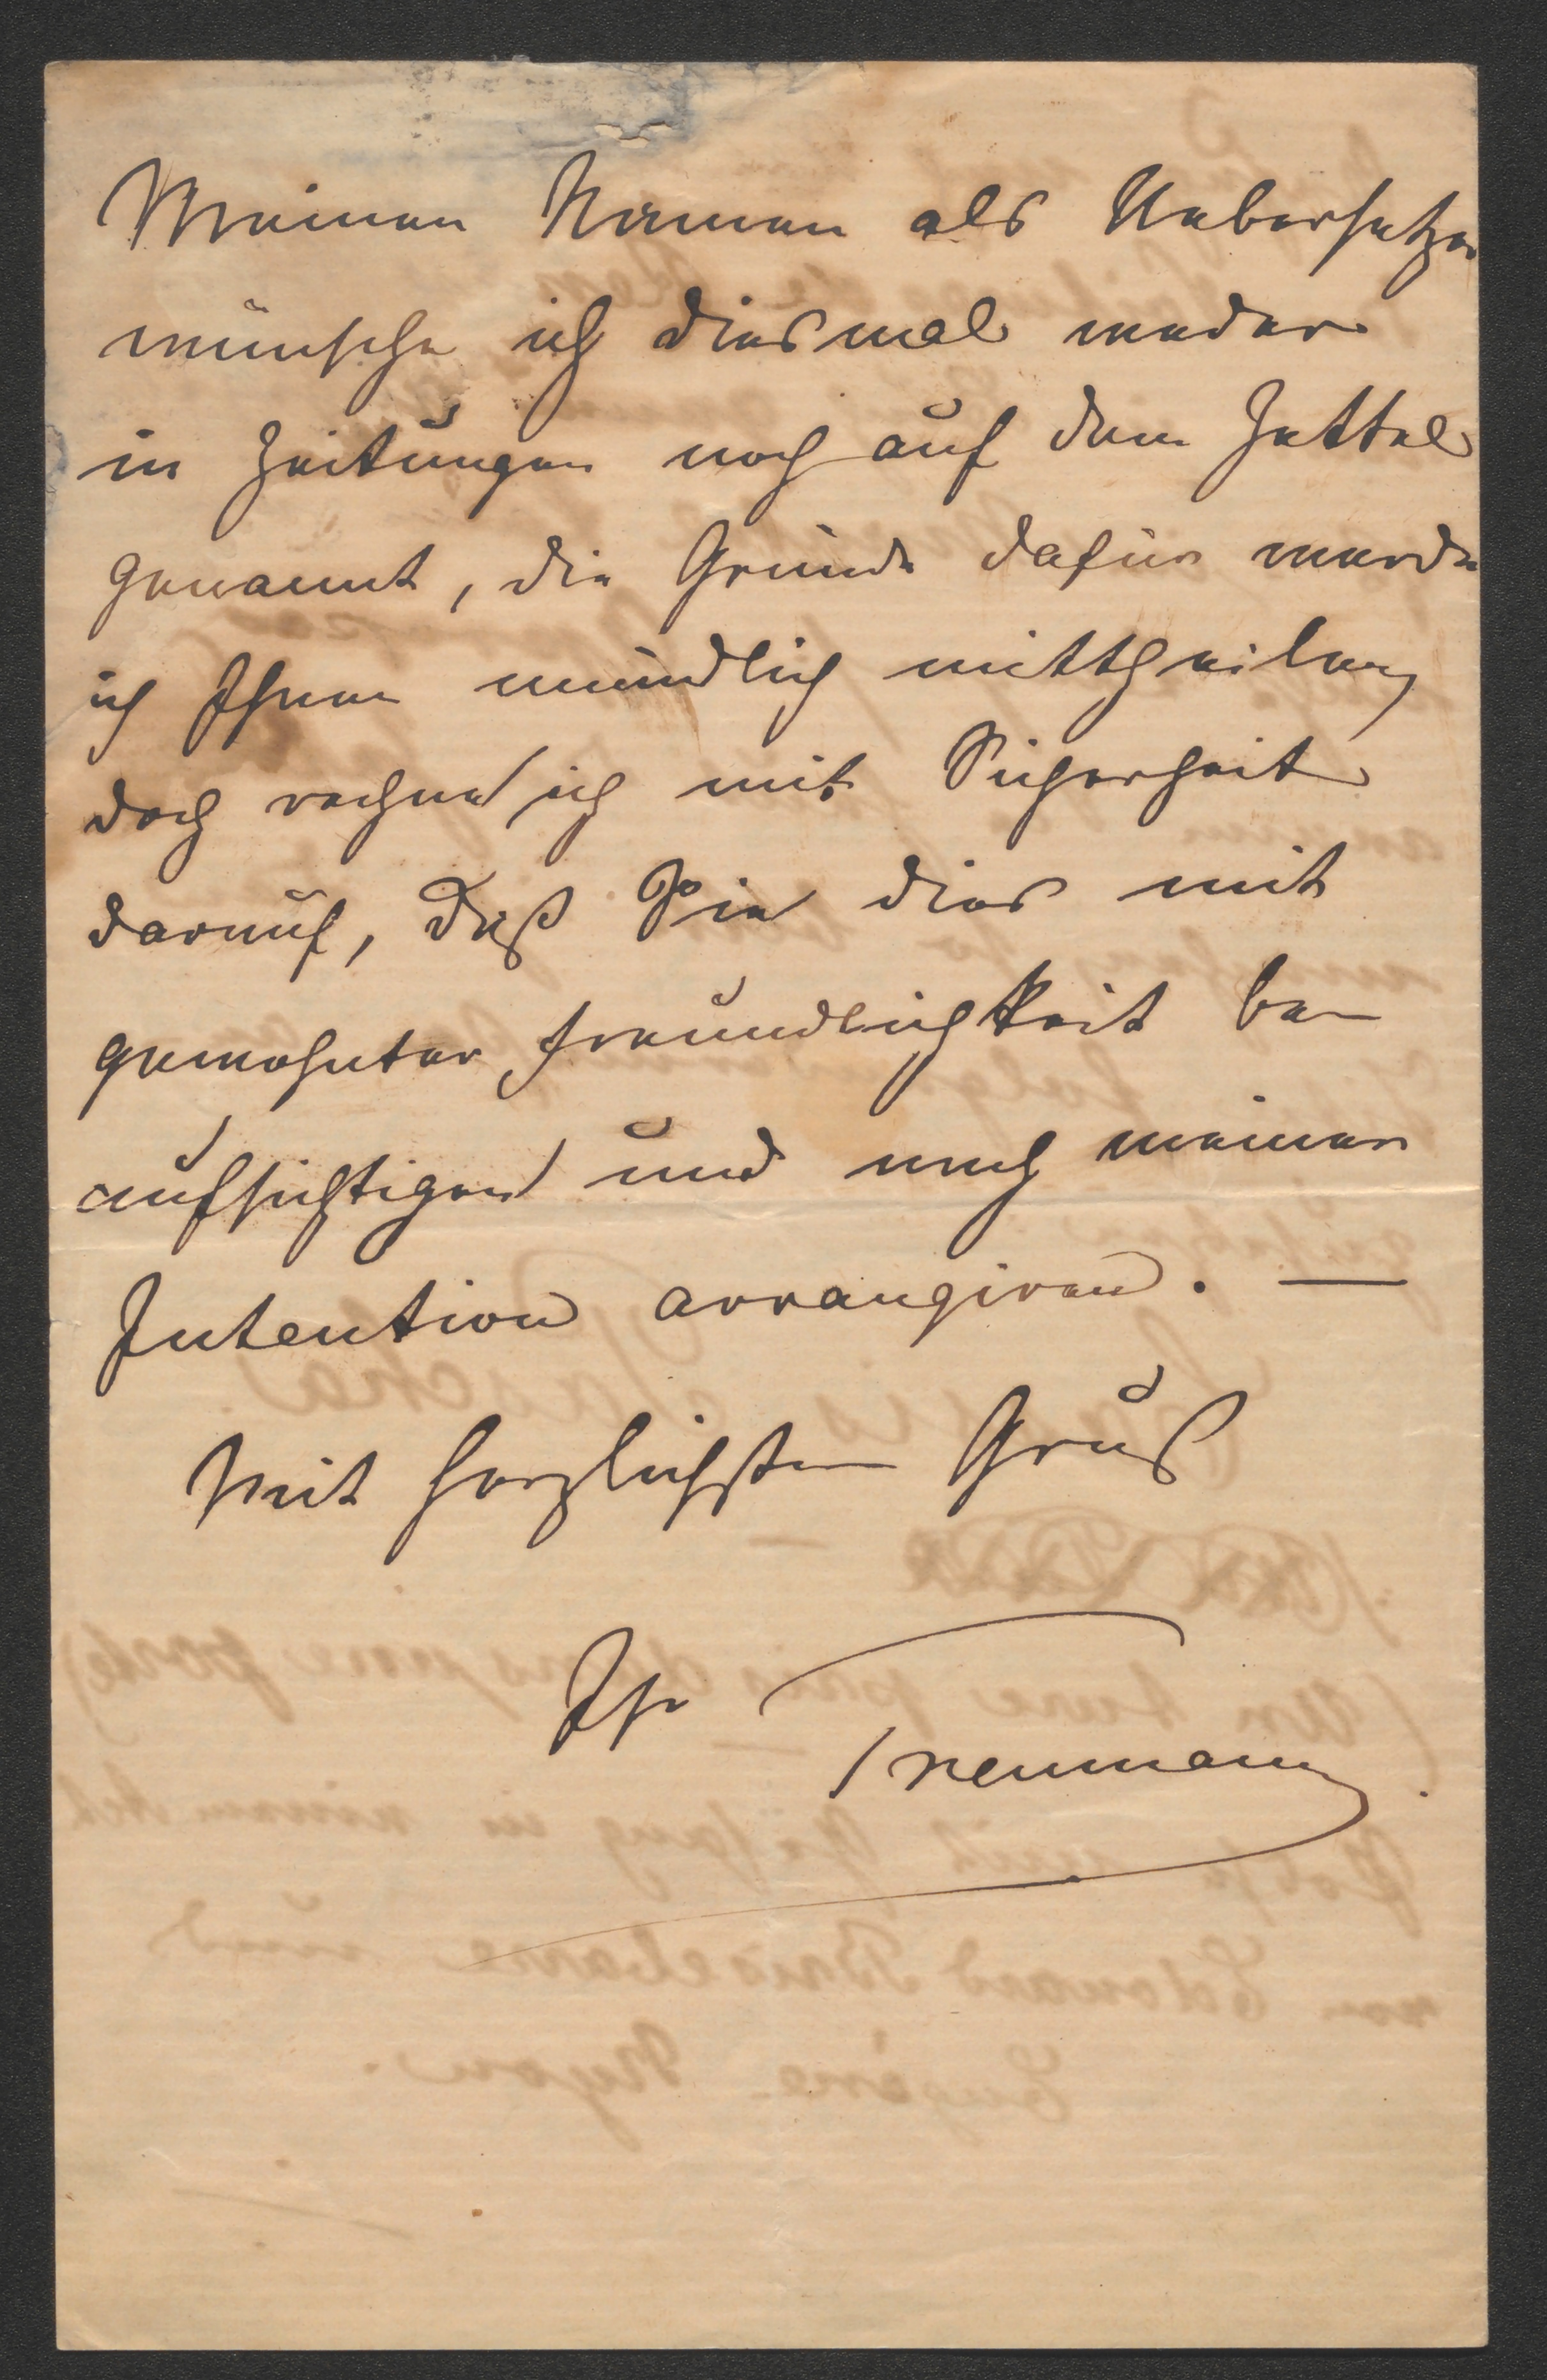 Meinen Namen als Uebersetzer
wünsche ich diesmal weder
in Zeitungen noch auf dem Zettel
genannt, die Gründe dafür werde
ich Ihnen mündlich mittheilen,
doch rechne ich mit Sicherheit
darauf, daß Sie dies mit
gewohnter Freundlichkeit be-
aufsichtigen und nach meiner
Intention arrangiren. —
Mit herzlichstem Gruß
Ihr
Treumann